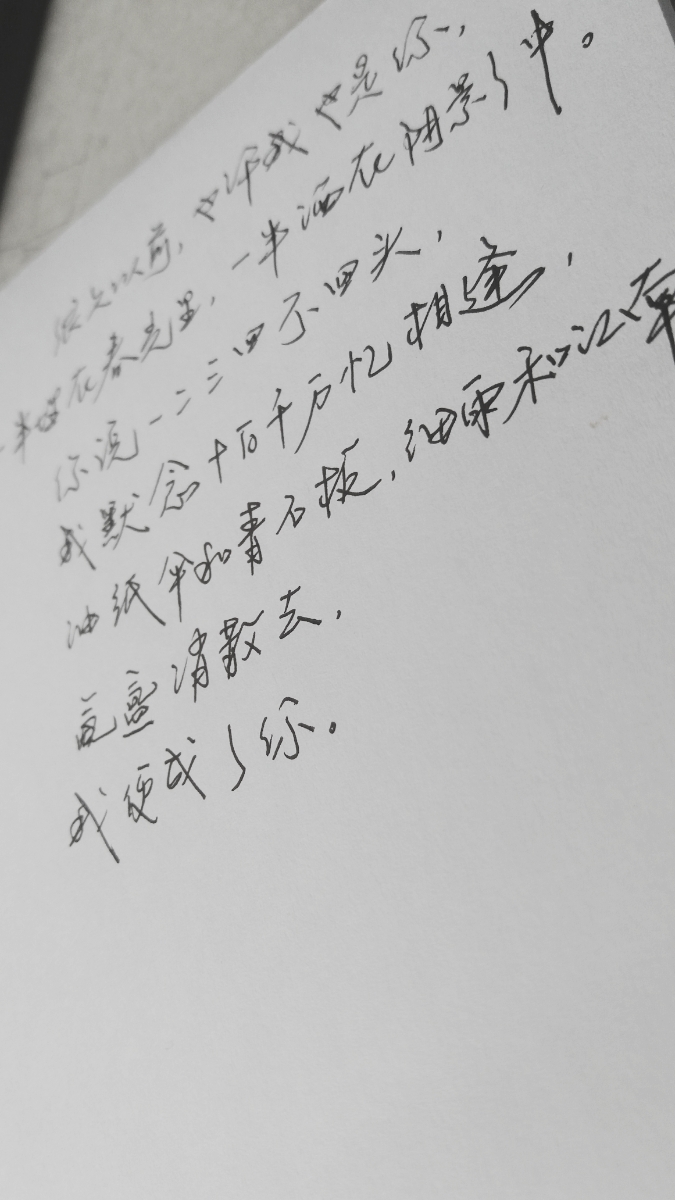 很久以前，也许我也是你，
一半在春光里，一半洒在阴影中。
你说一二三四不回头，
我默念十百千万忆相逢，
油纸伞和青石板，细雨和江南
氤氲消散去，
我便成了你。